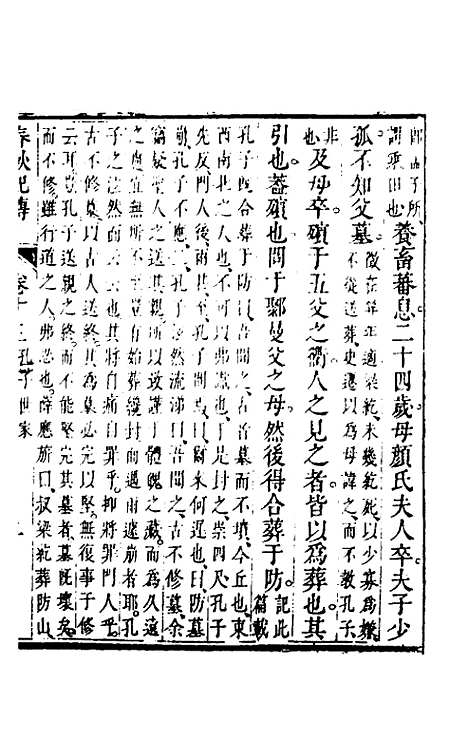 即孟子所
謂乘田也養畜蕃息二十四歲母顏氏夫人卒夫子少
孤不知父墓徵在年
適梁紇未幾紇死以少寡爲嫌
不從送葬史遷以爲母諱之而不教孔子
非
也及母卒殯于五父之衢人之見之者皆以爲葬也其
引也蓋殯也問于郰曼父之母然後得合葬于防此
記
篇載
孔子旣合葬于防曰吾聞之古者墓而不墳今丘也東
西南北之人也不可以弗識也于是封之崇四尺孔子
先反門人後雨甚至孔子問焉曰爾來何遲也曰防墓
崩孔子不應三孔子泫然流涕曰吾聞之古不修墓余
竊疑聖人之
送葬所以致謹于體魄之藏而爲久遠
之
豈無所不至
始葬
雨遇雨遽崩者耶孔
子之泫然而
也其將自痛自罪乎抑將罪門人乎
古不修墓以古人送終其爲墓必堅完以堅無復事于修
云耳豈孔子送親之終而不能堅其墓者墓旣壞矣
而不修雖行道之人弗忍也薛應旂曰叔梁紇葬防山
春秋紀傳
卷十三孔子世家